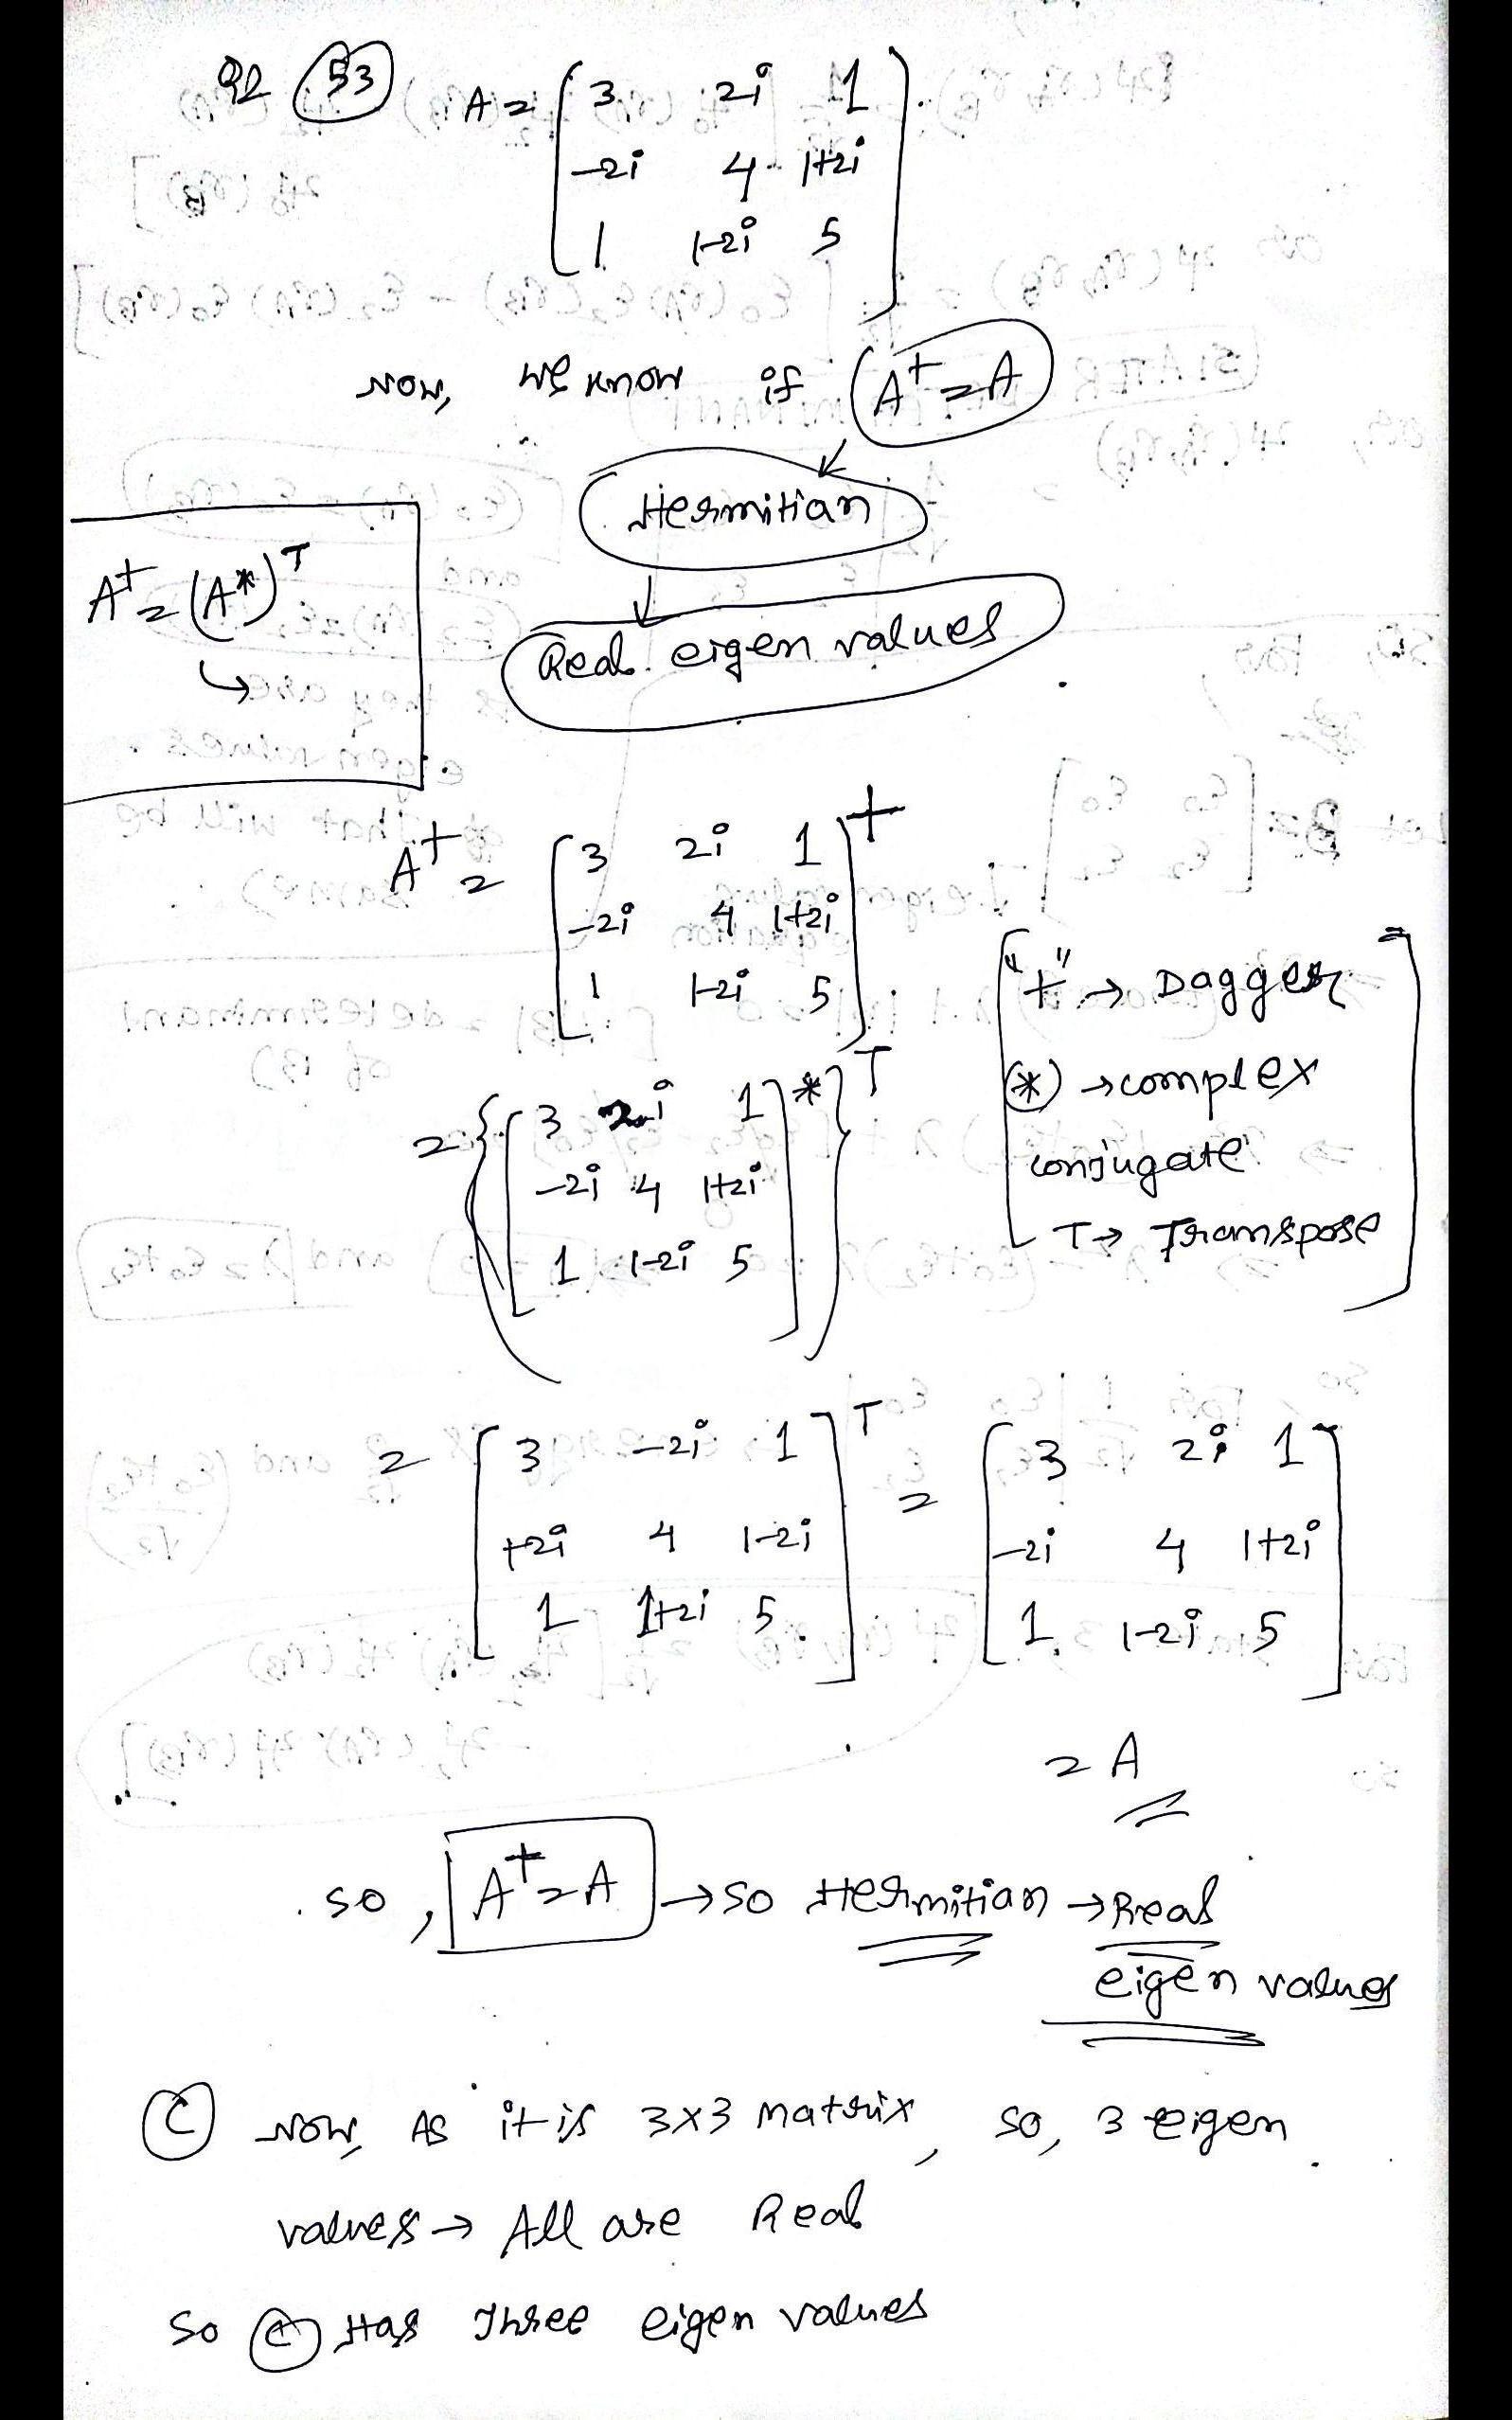 Q2 (53) A = [ 3 2i 1
-2i 4 1+2i
1 1-2i 5 ]
Now, we know if A† = A
↓
Hermitian
↓
Real eigen values
A† = (A*)^T
A† = [ 3 2i 1
-2i 4 1+2i
1 1-2i 5 ]†
"†" → Dagger
(*) → complex
conjugate
T → Transpose
= { [ 3 2i 1
-2i 4 1+2i
1 1-2i 5 ]* }^T
= [ 3 -2i 1
+2i 4 1-2i
1 1+2i 5 ]^T = [ 3 2i 1
-2i 4 1+2i
1 1-2i 5 ]
= A
so, A† = A → so Hermitian → Real
eigen values
(C) Now, As it is 3x3 matrix, so, 3 eigen
values → All are Real
So (C) Has Three eigen values